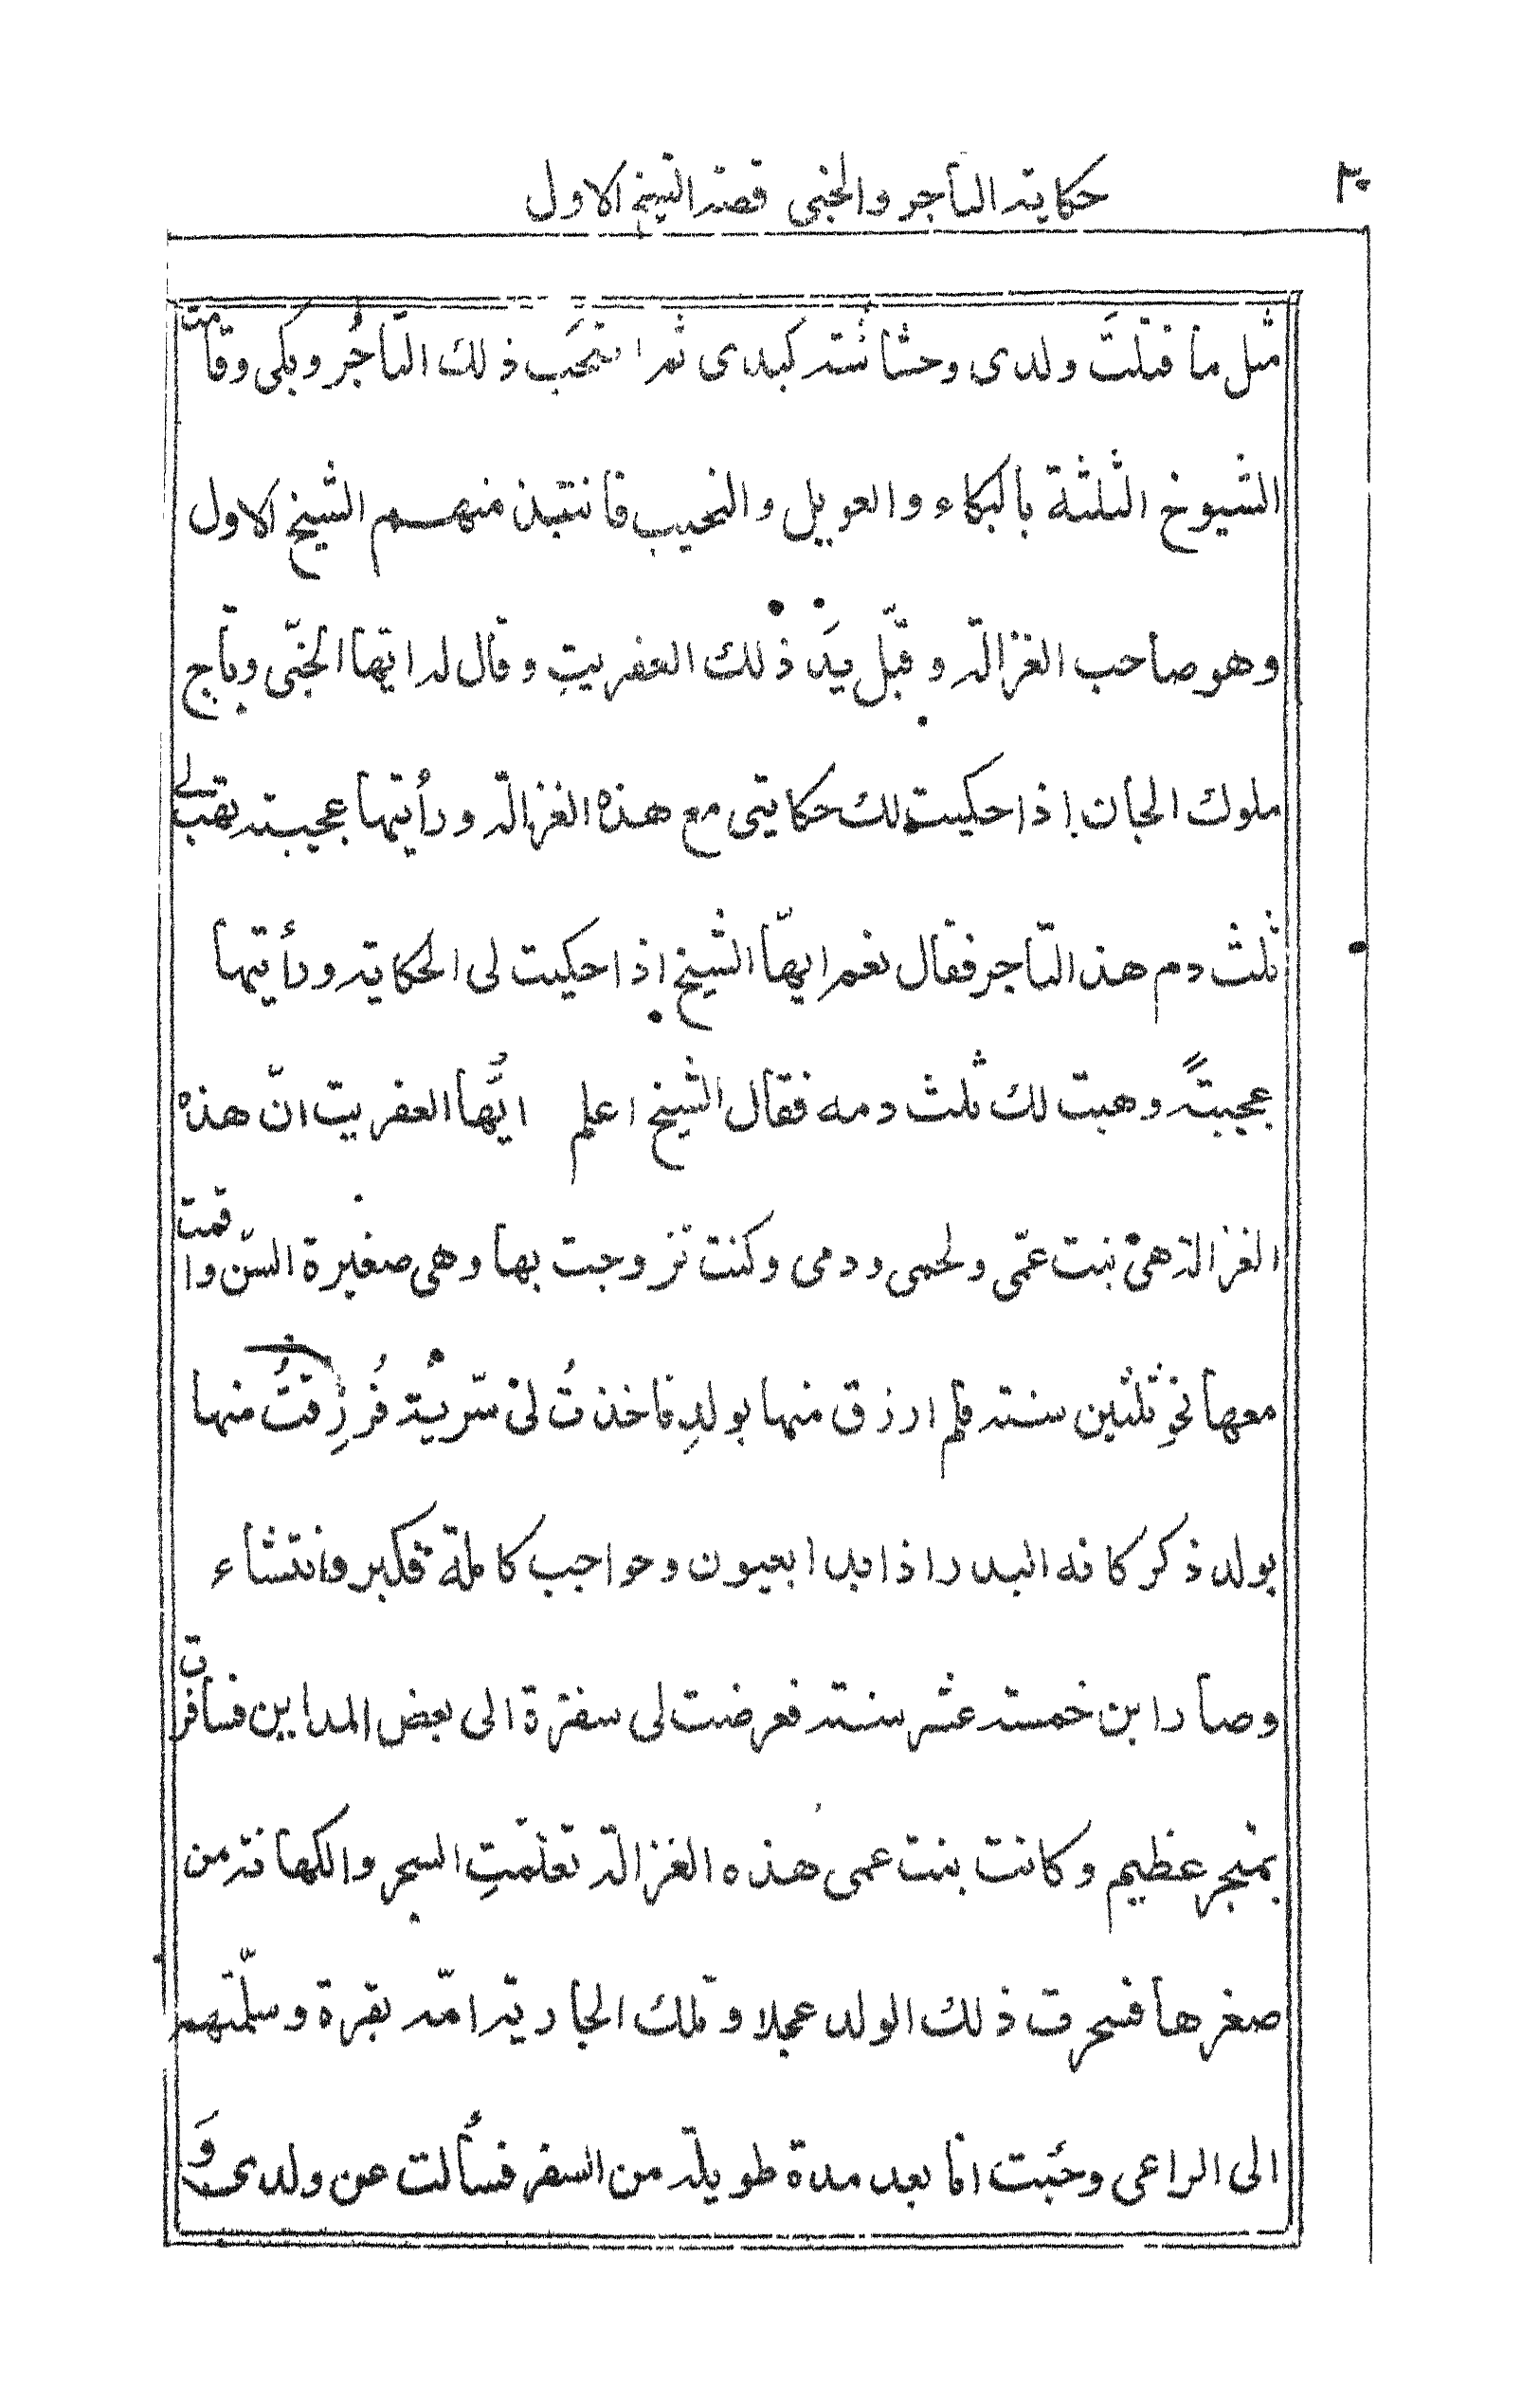 ٣٠
حكاية التاجر والجني قصة الشيخ الاول
مثل ما قتلتَ ولدى وحشاشة كبدى ثم انتحَب ذلك التاجُر وبكى وقامت
الشيوخ الثلثة بالبكاء والعويل والنحيب فانتبذ منهم الشيخ الاول
وهو صاحب الغزالة وقبّل يدَ ذلك العفريتِ وقال له ايها الجنّى وتاج
ملوك الجان إذا حكيت لك حكايتى مع هذه الغزالة ورأيتها عجيبة تهب لى
ثلث دم هذ التاجر فقال نعم ايّها الشيخ اذا حكيت لى الحكاية ورأيتها
عجيبةً وهبت لك ثلث دمه فقال الشيخ اعلم ايُّها العفريت انّ هذه
الغزالة هى بنت عمّى ولحمى ودمى وكنت تزوجت بها وهى صغيرة السّن واقمت
معها نحوِ ثلثين سنة فلم ارزق منها بولدٍ فاخذتُ لى سّرية فُرزِقتُ منها
بولد ذكر كانه البدر اذا بدا بعيون وحواجب كاملة فكبر وانتشاء
وصار ابن خمسة عشر سنة فعرضت لى سفرة الى بعض المداين فسافرت
بمتجر عظيم وكانت بنت عمى هذه الغزالة تعلمّتِ السحر والكهانة من
صغرها فسحرت ذلك الولد عجلا وتلك الجارية امّه بقرة وسلّمتهم
الى الراعى وجئت انا بعد مدة طويلة من السفر فسأُلت عن ولدى وَ